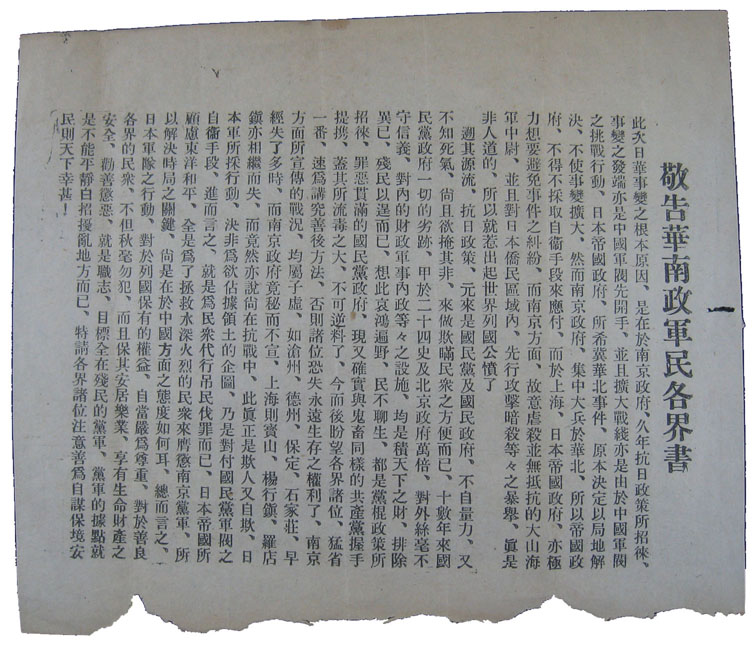 敬告華南政軍民各界書
此次日華事變之根本原因、是在於南京政府、久年抗日政策所招徠、
事變之發端亦是中國軍閥先開手、並且擴大戰綫亦是由於中國軍閥
之挑戰行動、日本帝國政府、所希冀華北事件、原本決定以局地解
決、不使事變擴大、然而南京政府、集中大兵於華北、所以帝國政
府、不得不採取自衞手段來應付、而於上海、日本帝國政府、亦極
力想要避免事件之糾紛、而南京方面、故意虐殺並無抵抗的大山海
軍中尉、並且對日本僑民區域內、先行攻擊暗殺等々之暴舉、眞是
非人道的、所以就惹出起世界列國公憤了
遡其源流、抗日政策、元來是國民黨及國民政府、不自量力、又
不知死氣、尙且欲掩其非、來做欺瞞民衆之方便而已、十數年來國
民黨政府一切的劣跡、甲於二十四史及北京政府萬倍、對外絲毫不
守信義、對內的財政軍事內政等々之設施、均是積天下之財、排除
異已、殘民以逞而已、想此哀鴻遍野、民不聊生、都是黨棍政策所
招徠、罪惡貫滿的國民黨政府、現又確實與鬼畜同樣的共產黨握手
提携、蓋其所流毒之大、不可逆料了、今而後盼望各界諸位、猛省
一番、速為講究善後方法、否則諸位恐失永遠生存之權利了、南京
方面所宣傳的戰況、均屬子虛、如滄州、德州、保定、石家莊、早
經失了多時、而南京政府竟秘而不宣、上海則寶山、楊行鎭、羅店
鎭亦相繼而失、而竟然亦說尙在抗戰中、此眞正是欺人又自欺、日
本軍所採行動、決非為欲佔據領土的企圖、乃是對付國民黨軍閥之
自衞手段、進而言之、就是爲民衆代行吊民伐罪而已、日本帝國所
顧慮東洋和平、全是爲了拯救水深火烈的民衆來膺懲南京黨軍、所
以解決時局之關鍵、尙是在於中國方面之態度如何耳、總而言之、
日本軍隊之行動、對於列國保有的權益、自當嚴爲尊重、對於善良
各界的民衆、不但秋毫勿犯、而且保其安居樂業、享有生命財產之
安全、勸善懲惡、就是職志、目標全在殘民的黨軍、黨軍的據點就
是不能平靜白招擾亂地方而已、特請各界諸位注意善爲自謀保境安
民則天下幸甚！